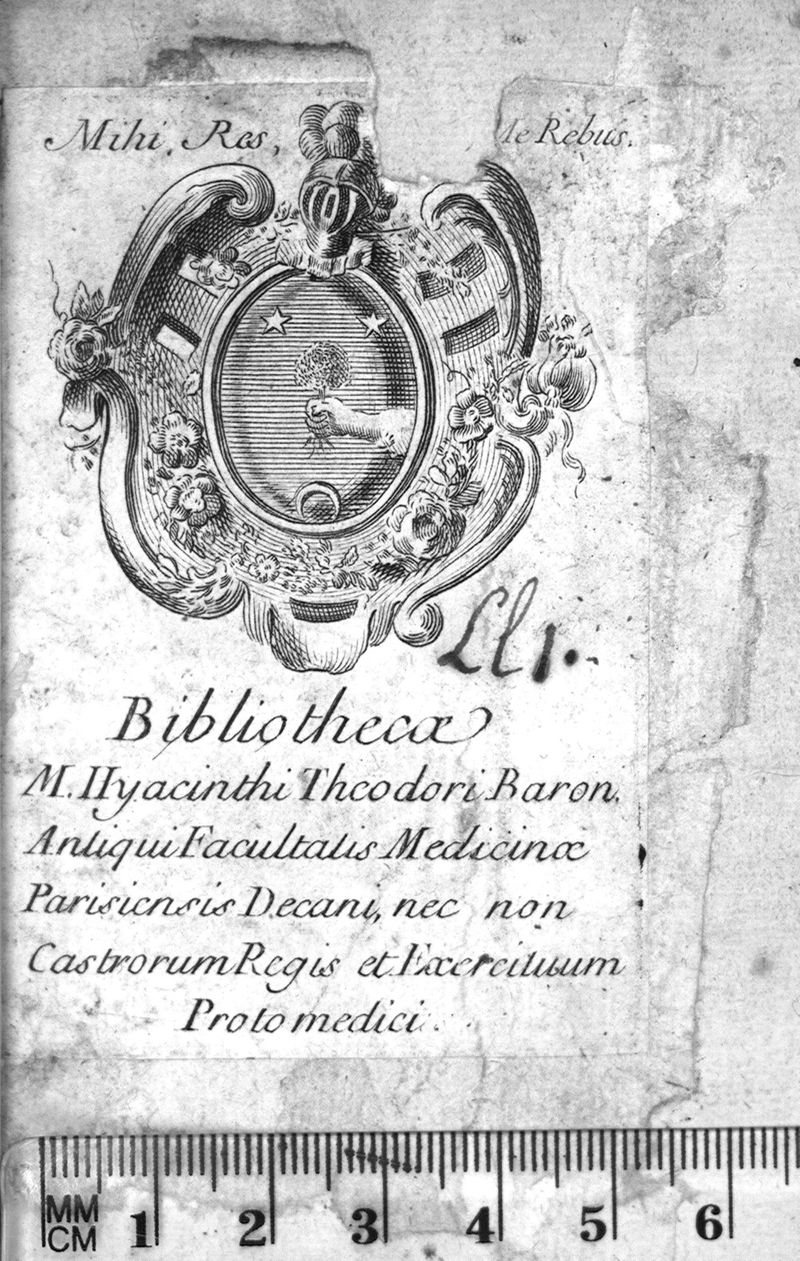 Mihi, Res, Me Rebus.
Ll 1.
Bibliothecæ
M. Hyacinthi Theodori Baron,
Antiqui Facultatis Medicinæ
Parisiensis Decani, nec non
Castrorum Regis et Exercituum
Protomedici.
MM
CM 1 2 3 4 5 6